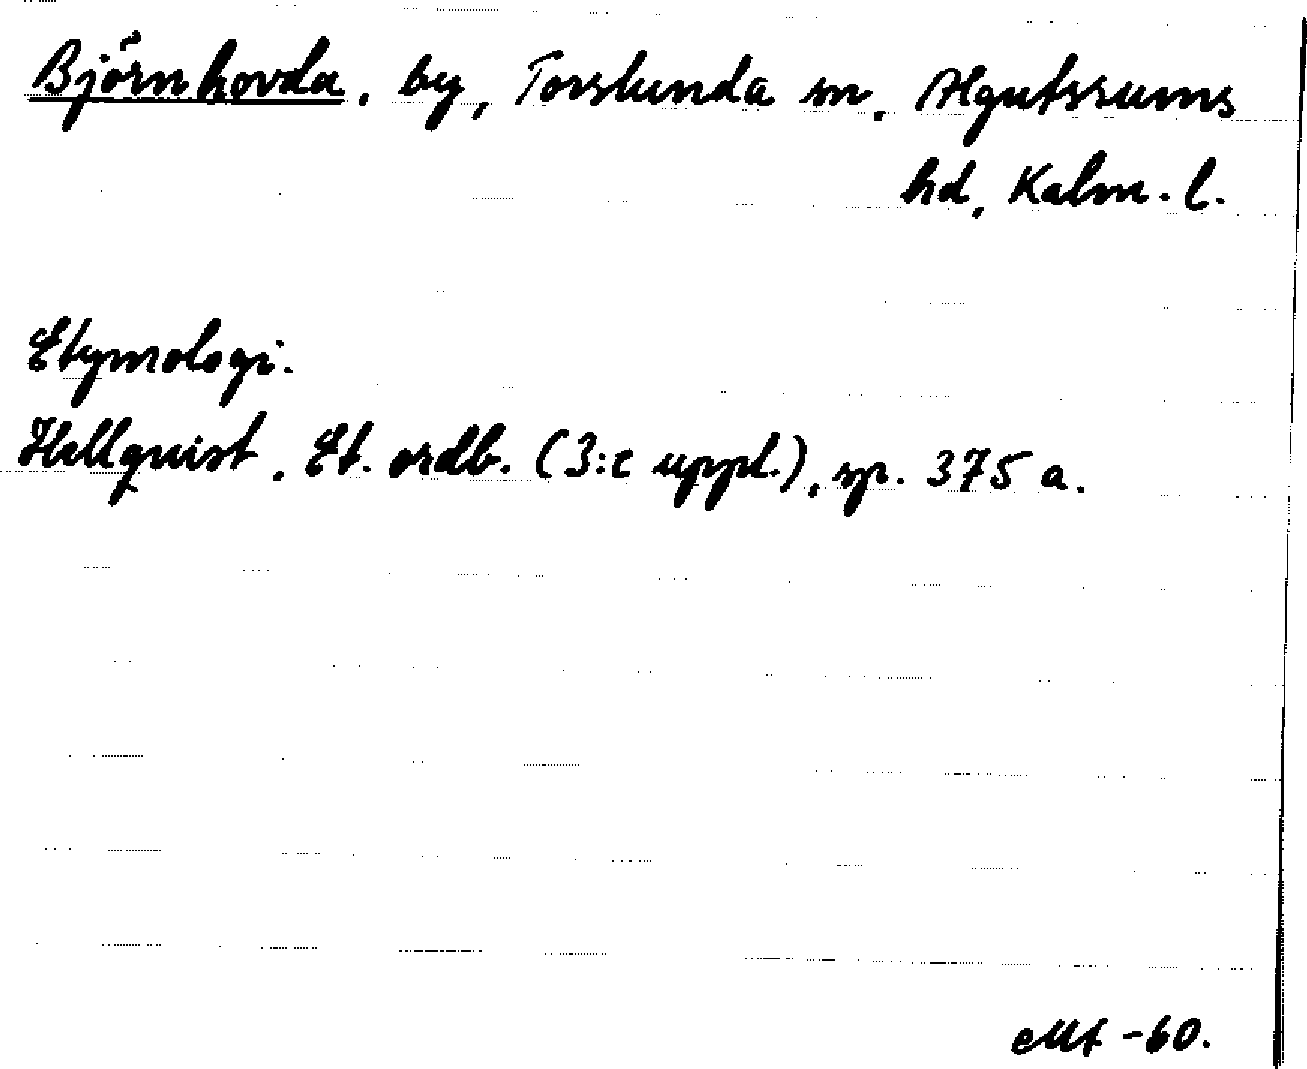 Björnhovda, by, Torslunda sn, Algutsrums
hd, Kalm. l.
Etymologi.
Hellquist, Et. ordb. (3:e uppl.), sp. 375 a.
-60.